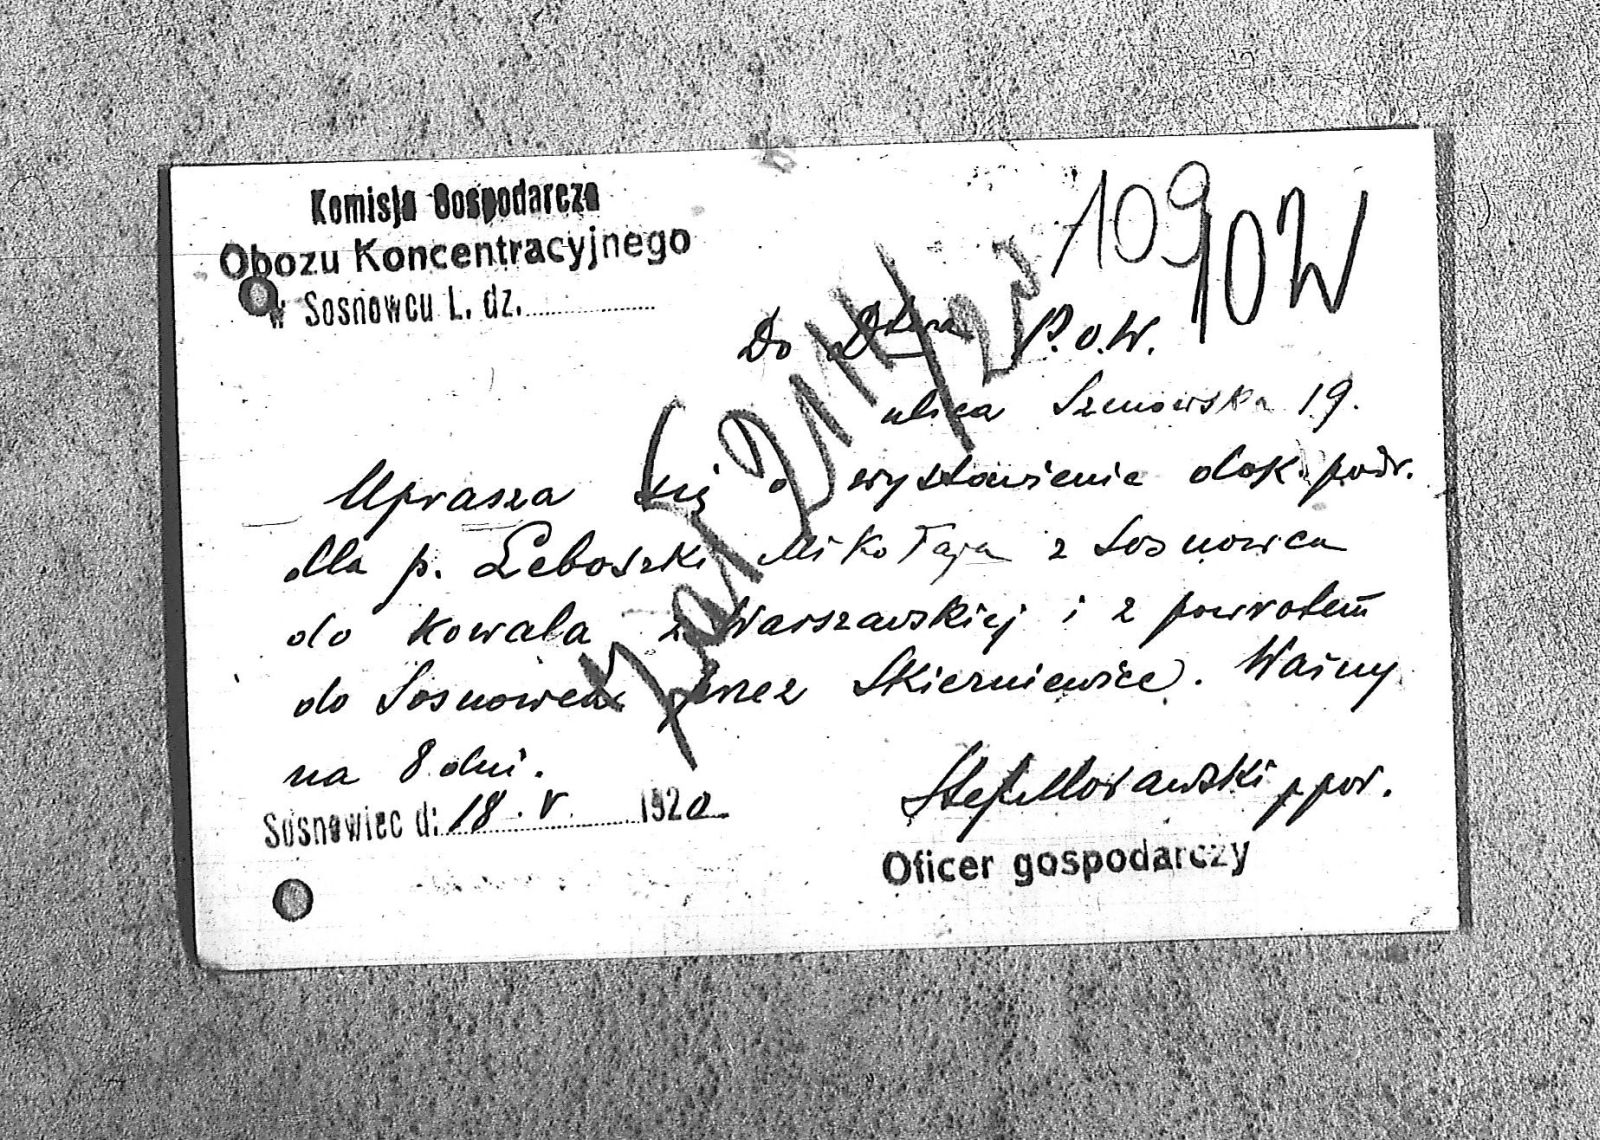 Komisja Gospodarcza
Obozu Koncentracyjnego
w Sosnowcu L. dz.
109
10W
Do P.O.W.
ulica 19.
Uprasza się o wystawienie dok. podr.
dla p. Leboszki Mikołaja z Sosnowca
do Kowala z Warszawskiej i z powrotem
do Sosnowca przez Skierniewice. Ważny
na 8 dni.
Sosnowiec d: 18. V 1920
Stef Morawski ppor.
Oficer gospodarczy